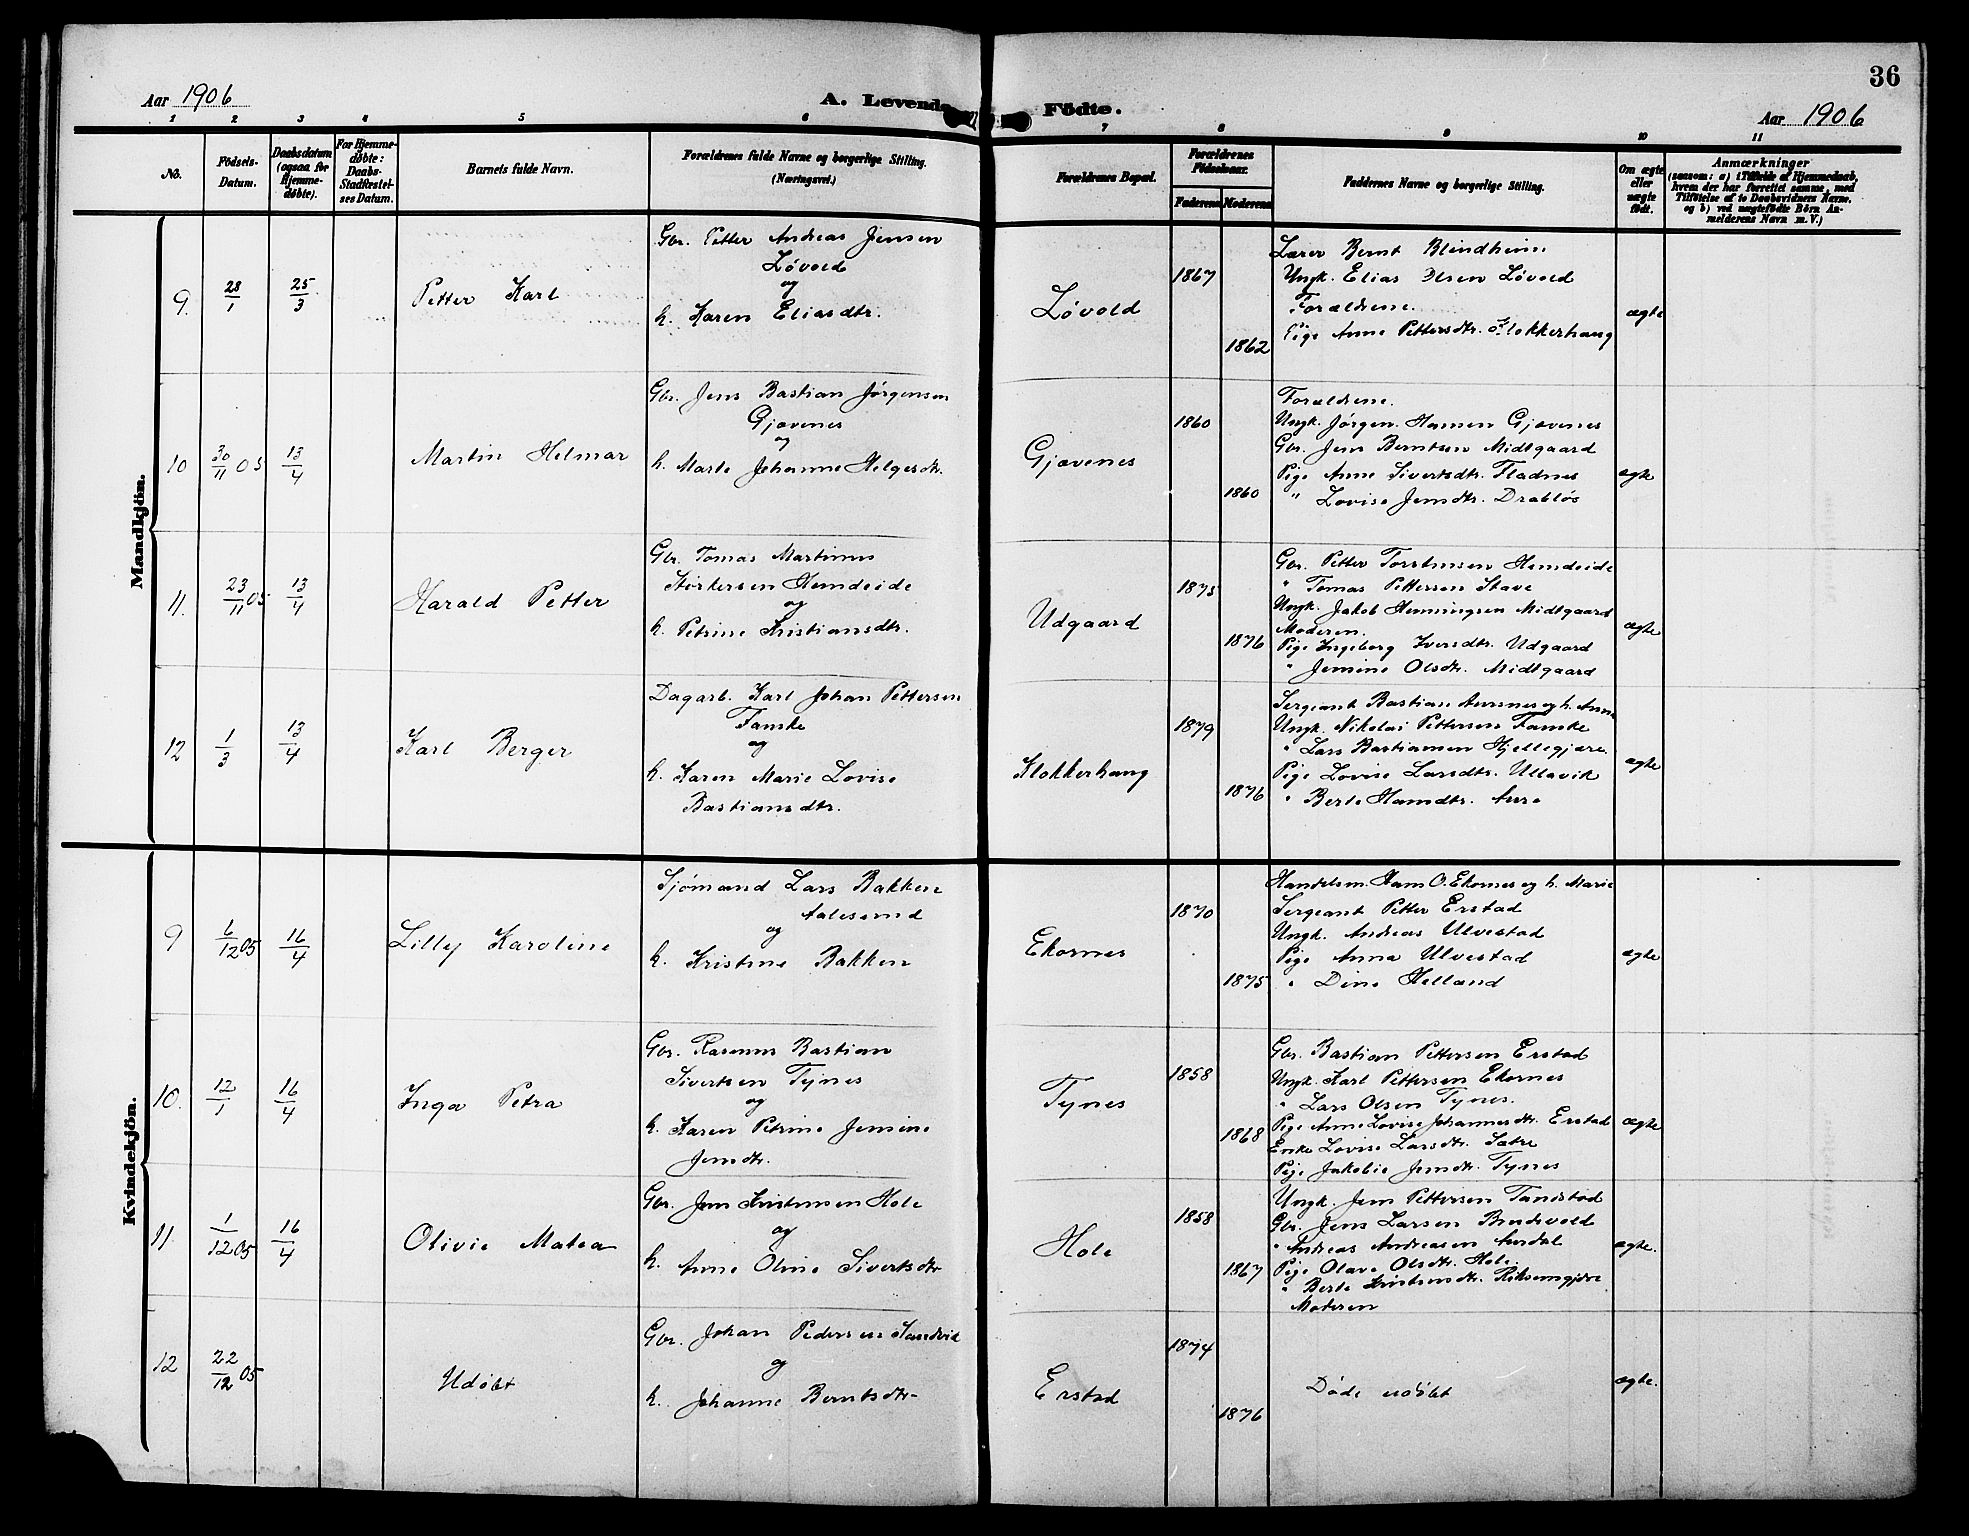 36
Aar 1906
A. Levende Födte.
Aar 1906
1 2 3 4 5 6 7 8 9 10 11
No.
Födsels-
Datum.
Daabsdatum
(ogsaa for
Hjemme-
døbte).
For Hjemme-
døbte:
Daabs-
Stadfestel-
ses Datum.
Barnets fulde Navn.
Forældrenes fulde Navne og borgerlige Stilling.
(Næringsvei.)
Forældrenes Bopæl.
Forældrenes
Födselsaar.
Faderens
Moderens
Faddernes Navne og borgerlige Stilling.
Om ægte
eller
uægte
født.
Anmærkninger
(saasom: a) i Tilfælde af Hjemmedaab,
hvem der har forrettet samme, med
Tilføielse af to Daabsvidners Navne,
og b) ved uægtefødte Börn An-
melderens Navn m. V.)
Mandkjön.
9.
28/1
25/3
Petter Karl
Gbr. Petter Andreas Jensen
Løvold
og
h. Karen Eliasdtr.
Løvold
1867
1862
Lærer Bernt Blindheim
Ungk. Elias Olsen Løvold
Forældrene.
Pige Anne Pettersdtr. Klokkerhaug
ægte
10
30/11 05
13/4
Martin Helmar
Gbr. Jens Bastian Jørgensen
Gjævenes
og
h. Marte Johanne Helgesdtr.
Gjævenes
1860
1860
Forældrene.
Ungk. Jørgen Hansen Gjævenes
Gbr. Jens Berntsen Midtgaard
Pige Anne Sivertsdtr. Fladnes
" Lovise Jensdtr. Drabløs
ægte
11.
23/11 05
13/4
Harald Petter
Gbr. Tomas Martinus
Størkersen Hundeide
og
h. Petrine Kristiansdtr.
Udgaard
1875
1876
Gbr. Petter Torstensen Hundeide
" Tomas Pettersen Stave
Ungk. Jakob Henningsen Midtgaard
Moderen.
Pige Ingeborg Iversdtr. Udgaard
" Jemine Olsdtr. Midtgaard
ægte
12
1/3
13/4
Karl Berger
Dagarb. Karl Johan Pettersen
Fauske
og
h. Karen Marie Lovise
Bastiansdtr.
Klokkerhaug
1879
1876
Sergeant Bastian Aursnes og h. Anna
Ungk. Nikolai Pettersen Fauske
" Lars Bastiansen Hjellegjære.
Pige Lovise Larsdtr. Ullavik
" Berte Hansdtr. Aure
ægte
Kvindekjön.
9
6/12 05
16/4
Lilly Karoline
Sjømand Lars Bakken
Aalesund
og
h. Kristine Bakken
Ekornes
1870
1875
Handelsm. Hans O. Ekornes og h. Marie
Sergeant Petter Erstad
Ungk. Andreas Ulvestad
Pige Anna Ulvestad
" Dine Helland
ægte
10.
12/1
16/4
Inga Petra
Gbr. Rasmus Bastian
Sivertsen Tynes
og
h. Karen Petrine Jemine
Jensdtr.
Tynes
1858
1868
Gbr. Bastian Pettersen Erstad
Ungk. Karl Pettersen Ekornes
" Lars Olsen Tynes.
Pige Anne Lovise Johannesdtr. Erstad
Enke Lovise Larsdtr. Sætre
Pige Jakobie Jensdtr. Tynes
ægte
11.
1/12 05
16/4
Olivie Matea
Gbr. Jens Kristensen Hole
og
h. Anne Oline Sivertsdtr
Hole
1858
1867
Ungk. Jens Pettersen Tandstad
Gbr. Jens Larsen Brudevold
" Andreas Andreasen Aurdal
Pige Olave Olsdtr. Hole
" Berte Kristensdtr.
Moderen
ægte.
12
22/12 05
Udøbt
Gbr. Johan Pedersen Sandvik
og
h. Johanne Berntsdtr
Erstad
1874
1876
Døde udøbt
ægte.